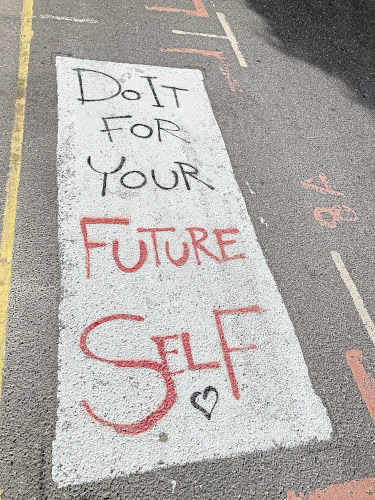 DoIT
FOR
YOUR
FUTURE
SELF